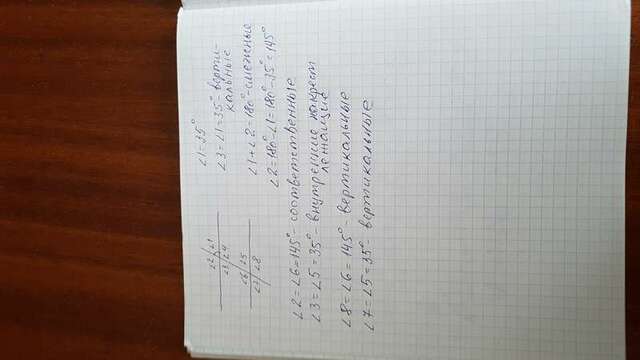 ∠1=35°
∠3=∠1=35°- верти-
кальные
∠1+∠2=180°-смежные
∠2=180°-∠1=180°-35°=145°
∠2/∠1
∠3/∠4
∠6/∠5
∠7/∠8
∠2=∠6=145°- соответственные
∠3=∠5=35°- внутренние накрест
лежащие
∠8=∠6=145°- вертикальные
∠7=∠5=35°- вертикальные